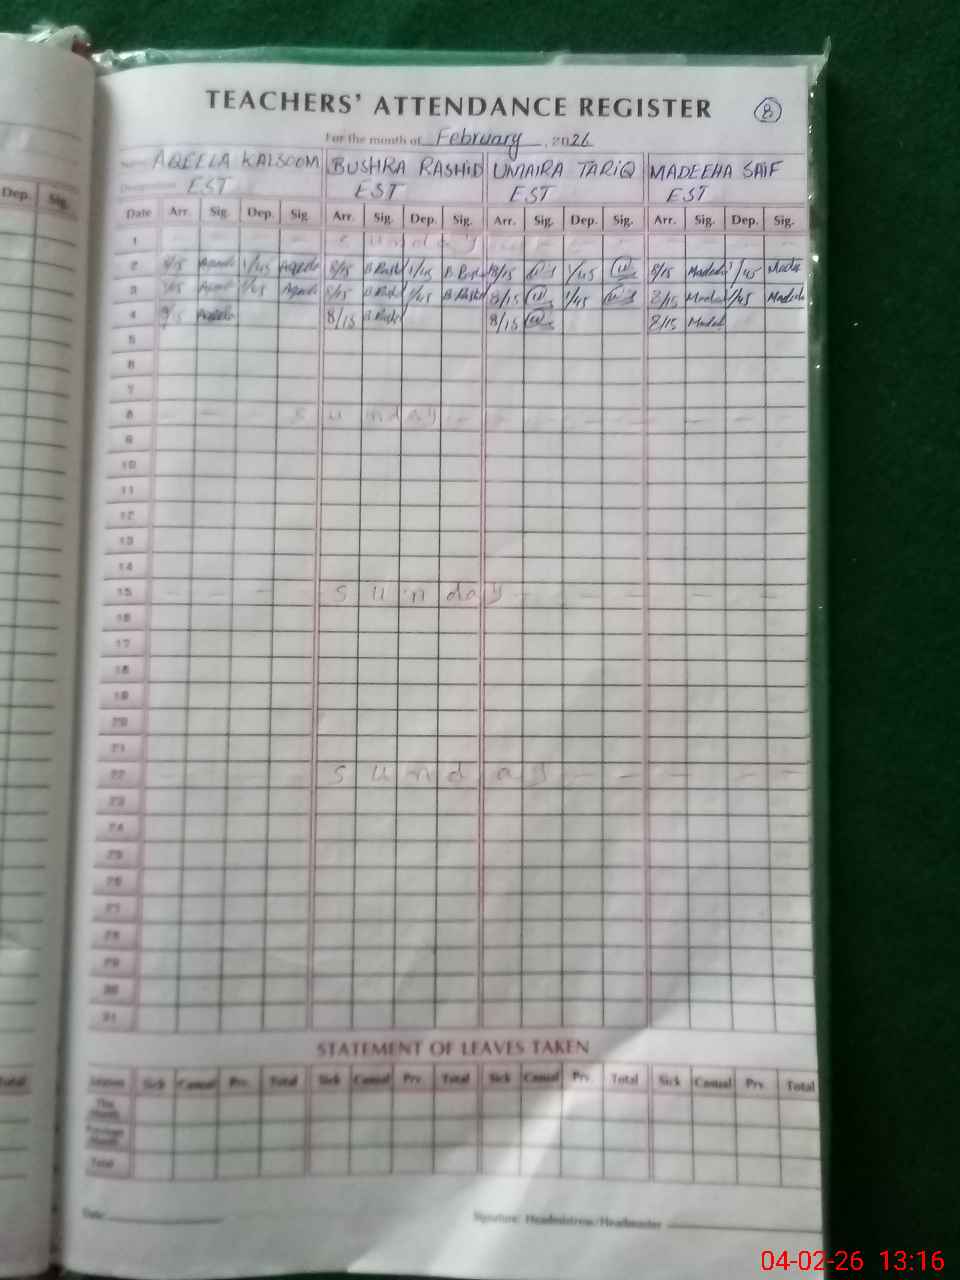 TEACHERS' ATTENDANCE REGISTER 8
For the month of February, 2026
Name AQEELA KALSOOM BUSHRA RASHID UMAIRA TARIQ MADEEHA SAIF
Designation EST EST EST EST
Dep. Sig.
Date Arr. Sig. Dep. Sig. Arr. Sig. Dep. Sig. Arr. Sig. Dep. Sig. Arr. Sig. Dep. Sig.
1 Sunday
2 8/15 Aqeela 1/45 Aqeela 8/15 B.Rashid 1/45 B.Rashid 8/15 1/45 8/15 Madeeha 1/45
3 8/15 Aqeela 1/45 Aqeela 8/15 B.Rashid 1/45 B.Rashid 8/15 1/45 8/15 Madeeha 1/45 Madeeha
4 8/15 Aqeela 8/15 B.Rashid 8/15 8/15 Madeeha
5
6
7
8 Sunday
9
10
11
12
13
14
15 Sunday
16
17
18
19
20
21
22 Sunday
23
24
25
26
27
28
29
30
31
STATEMENT OF LEAVES TAKEN
Total
Leaves Sick Casual Prv. Total Sick Casual Prv. Total Sick Casual Prv. Total Sick Casual Prv. Total
This Month
Previous Month
Total
Date: Signature: Headmistress/Headmaster
04-02-26 13:16